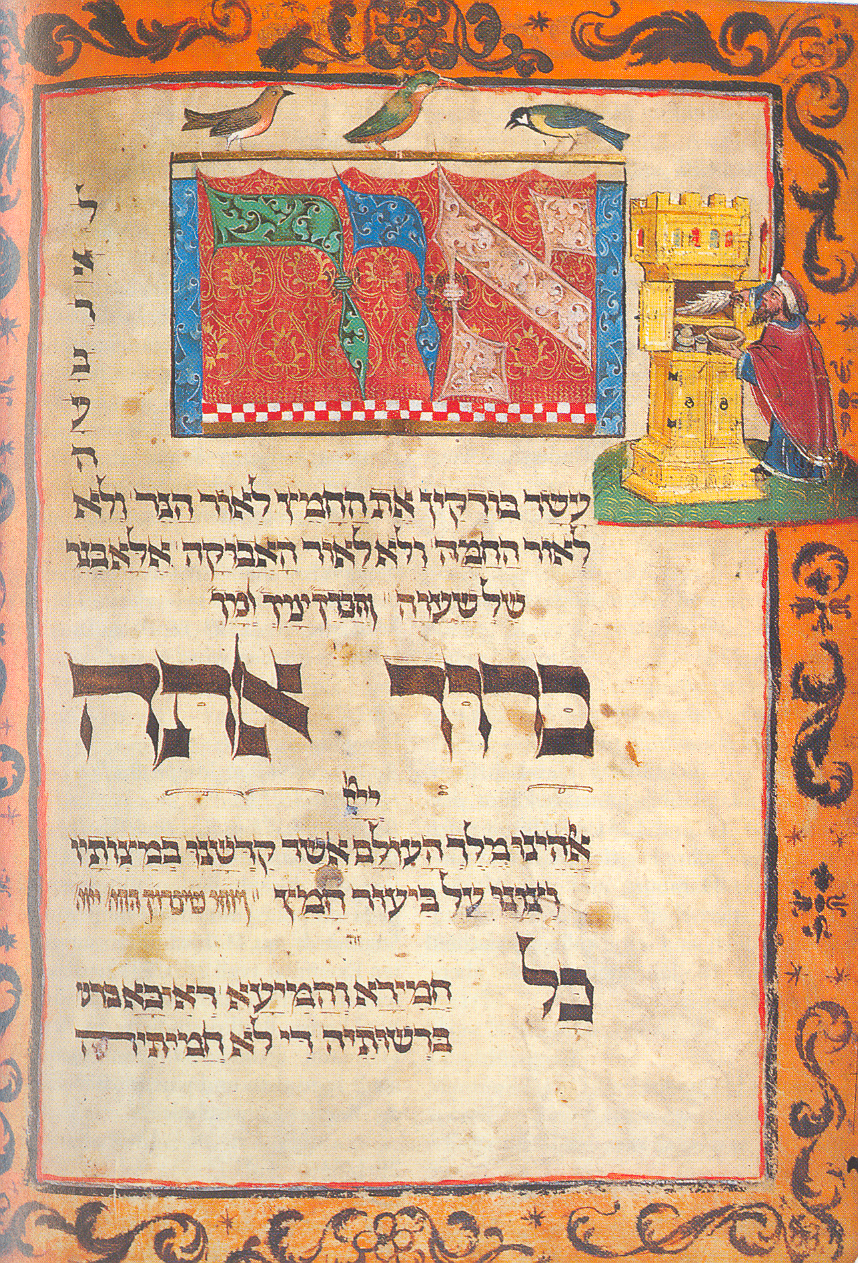 אור
לארבעה
עשר בודקין את החמץ לאור הנר ולא
לאור החמה ולא לאור האבוקה אלא בנר
של שעוה
ברוך אתה
ייי
אלהינו מלך העולם אשר קדשנו במצותיו
וצונו על ביעור חמץ
כל
חמירא וחמיעא דאיכא ברש
ברשותיה די לא חמיתיה